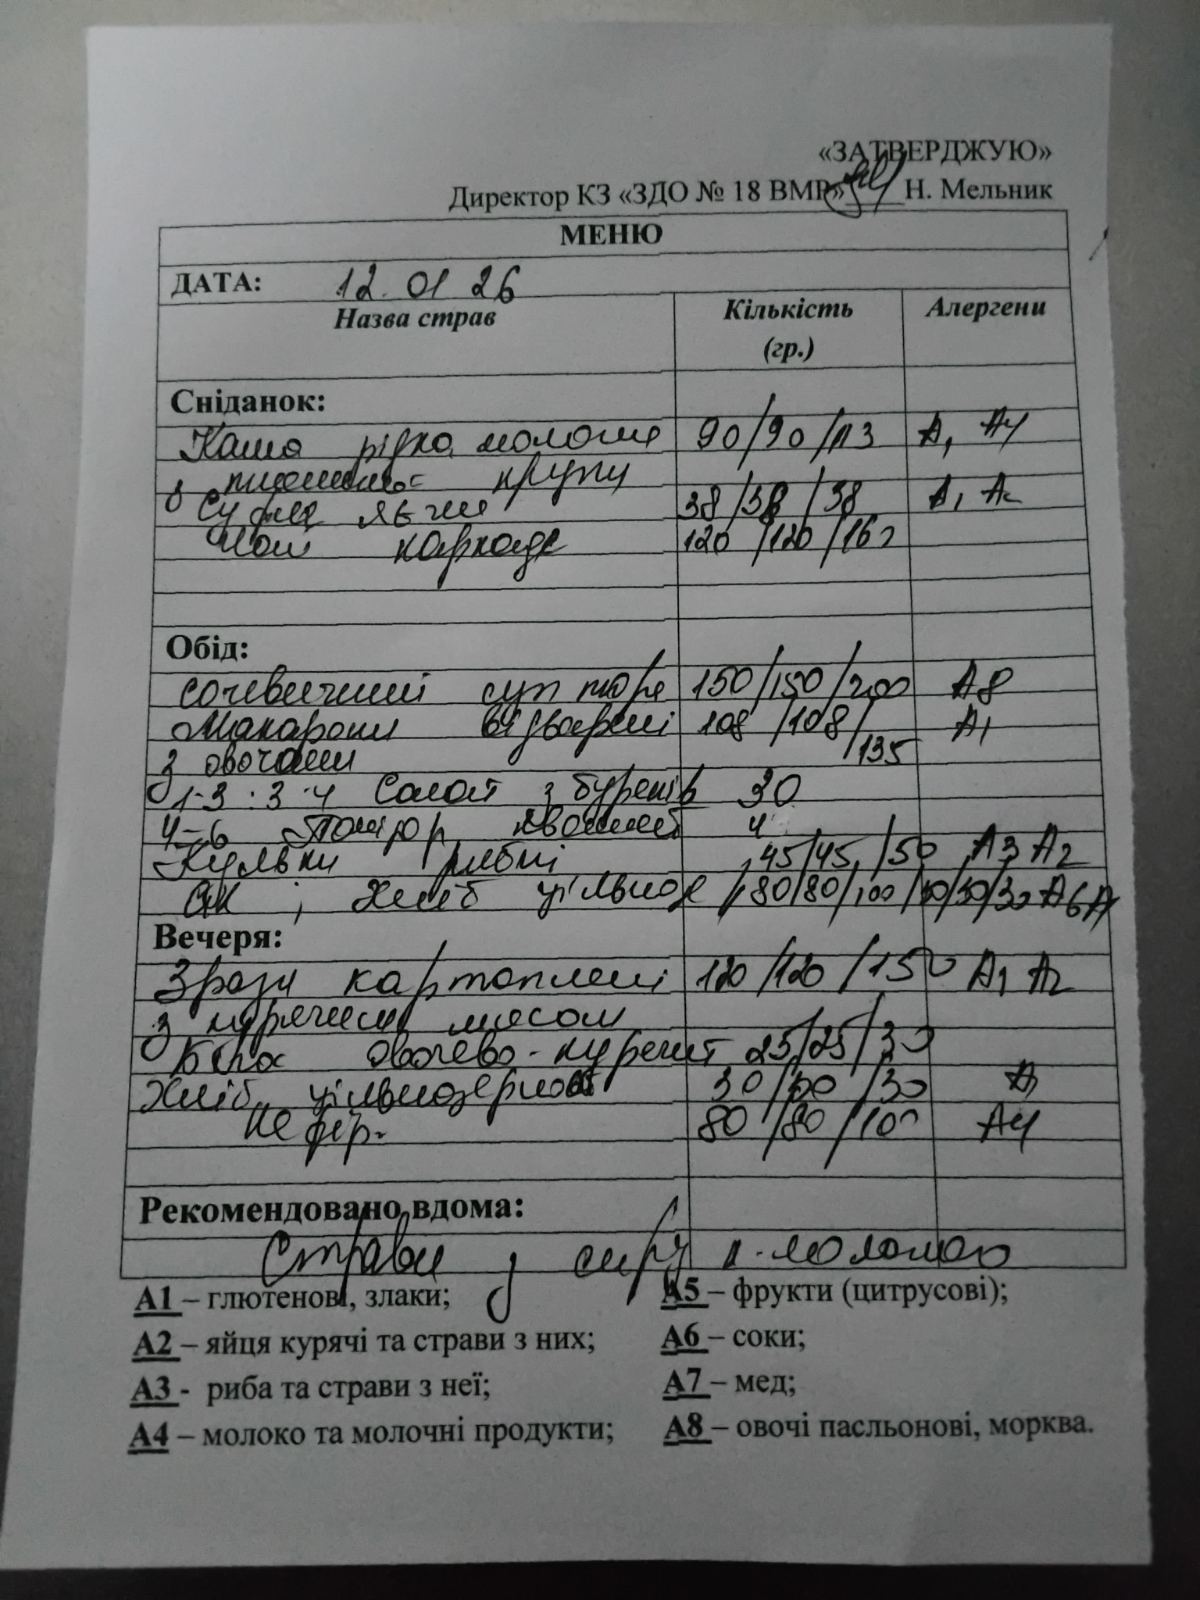 «ЗАТВЕРДЖУЮ»
Директор КЗ «ЗДО № 18 ВМР» Н. Мельник
МЕНЮ
ДАТА: 12.01 26
Назва страв Кількість (гр.) Алергени
Сніданок:
Каша рідка молочна 90/90/113 А1 А4
з пшеничної крупи
Суфле яєчне 38/38/38 А1 А2
Чай каркаде 120/120/160
Обід:
Сочевичний суп пюре 150/150/200 А8
Макарони відварені 108/108/135 А1
з овочами
1-3 : 3-4 Салат з буряків 30
4-6 Помідор квашений
Кульки рибні 45/45/50 А3 А2
Сік ; Хліб цільноз 80/80/100 /30/30/30 А6 А1
Вечеря:
Зрази картопляні 120/120/150 А1 А2
з курячим мясом
овочево-курячит 25/25/30
Хліб цільнозернов 30/30/30 А1
Кефір 80/80/100 А4
Рекомендовано вдома:
Страви з сиру к-молочного
А1 – глютенові, злаки;
А2 – яйця курячі та страви з них;
А3 - риба та страви з неї;
А4 – молоко та молочні продукти;
А5 – фрукти (цитрусові);
А6 – соки;
А7 – мед;
А8 – овочі пасльонові, морква.